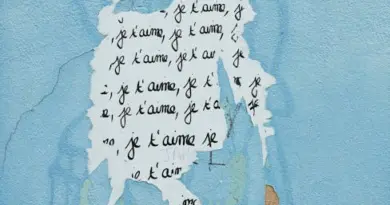 , je t'aime, je
, je t'aime, je t'aime,
je t'aime, je t'ai je
, je t'aime, je t'aime, je
e, je t'aime, je t'a je
, je t'aime je
je t'aim
ime